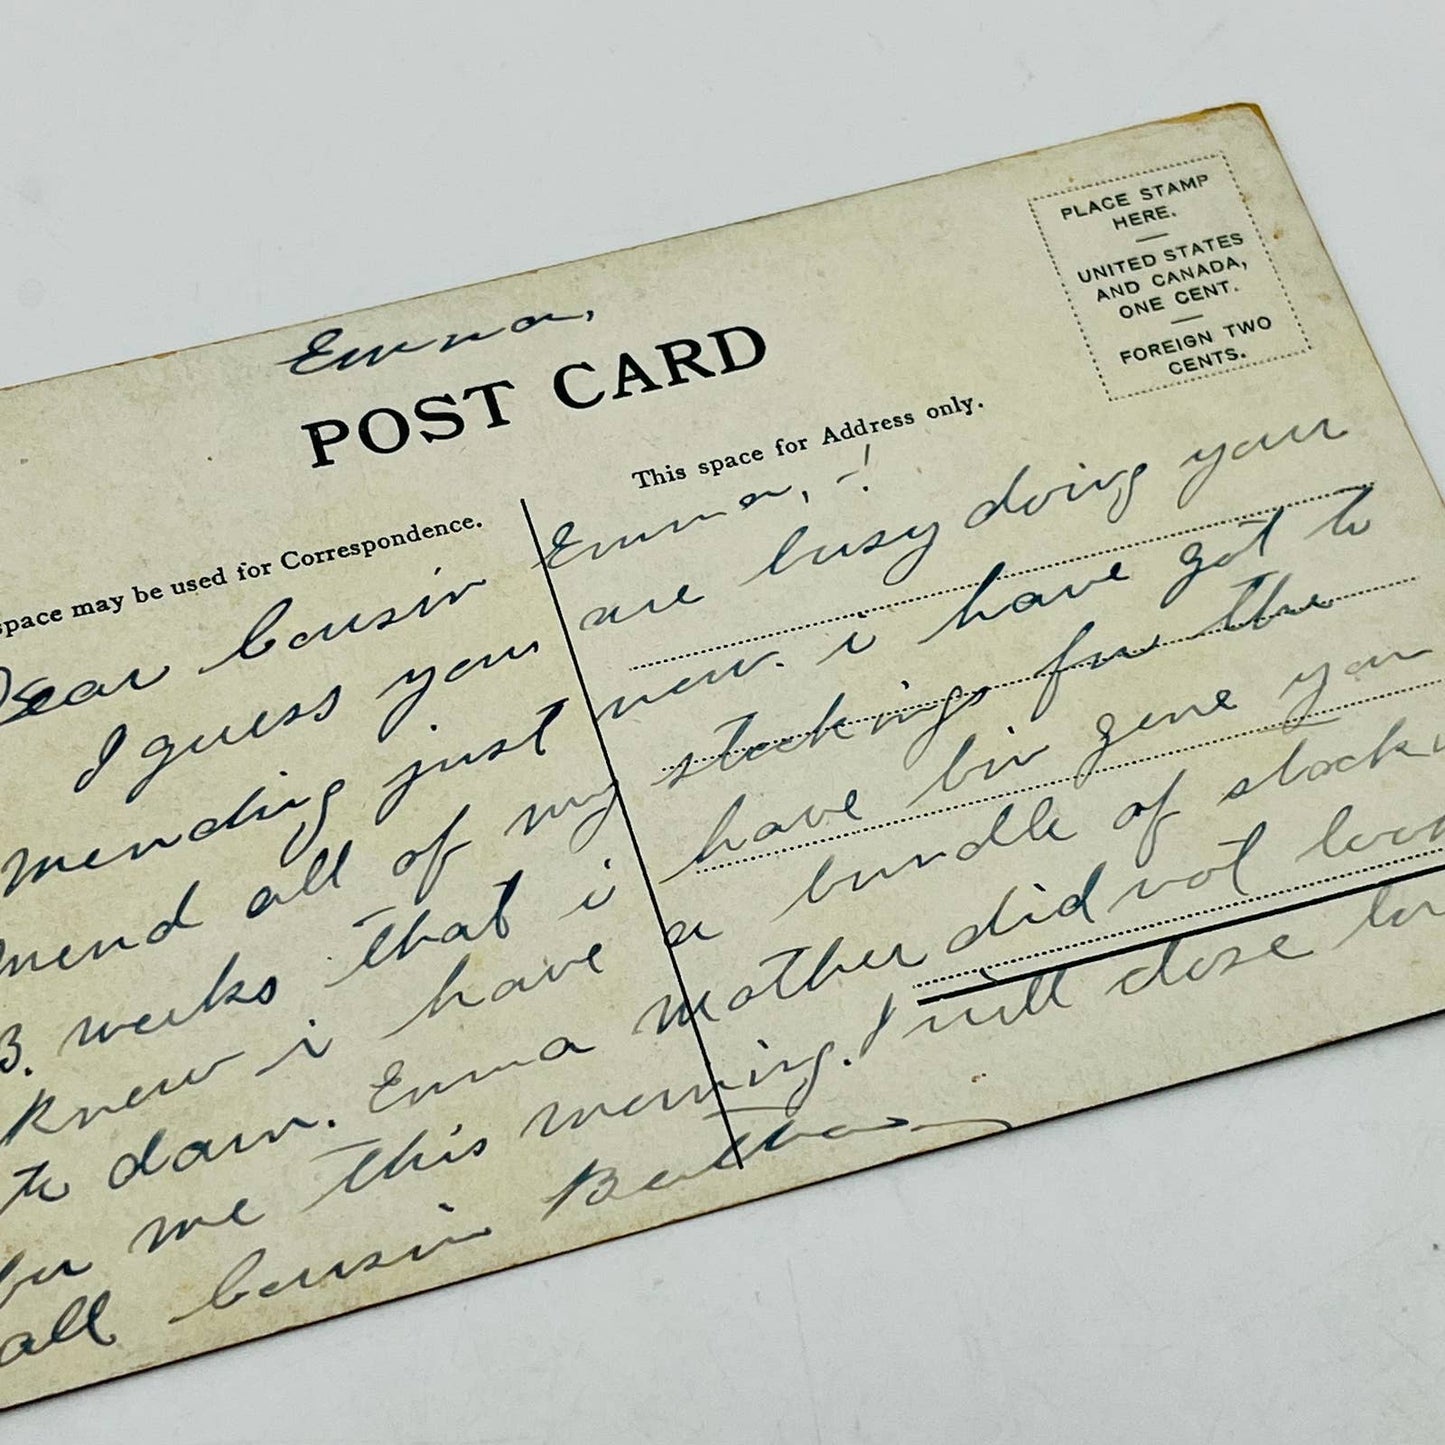 Emma,
POST CARD
PLACE STAMP
HERE.
UNITED STATES
AND CANADA,
ONE CENT.
FOREIGN TWO
CENTS.
space may be used for Correspondence.
This space for Address only.
Dear Cousin Emma, -!
I guess you are busy doing your
mending just now. i have got to
mend all of my stockings for the
3. weeks that i have bin gone you
know i have a bundle of stock
to darn. Emma Mother did not look
for me this morning. I will close
all Cousin Bertha